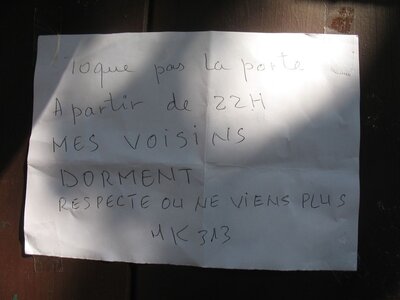 Toque pas la porte
A partir de 22H
MES VOISINS
DORMENT
RESPECTE OU NE VIENS PLUS
MK 313